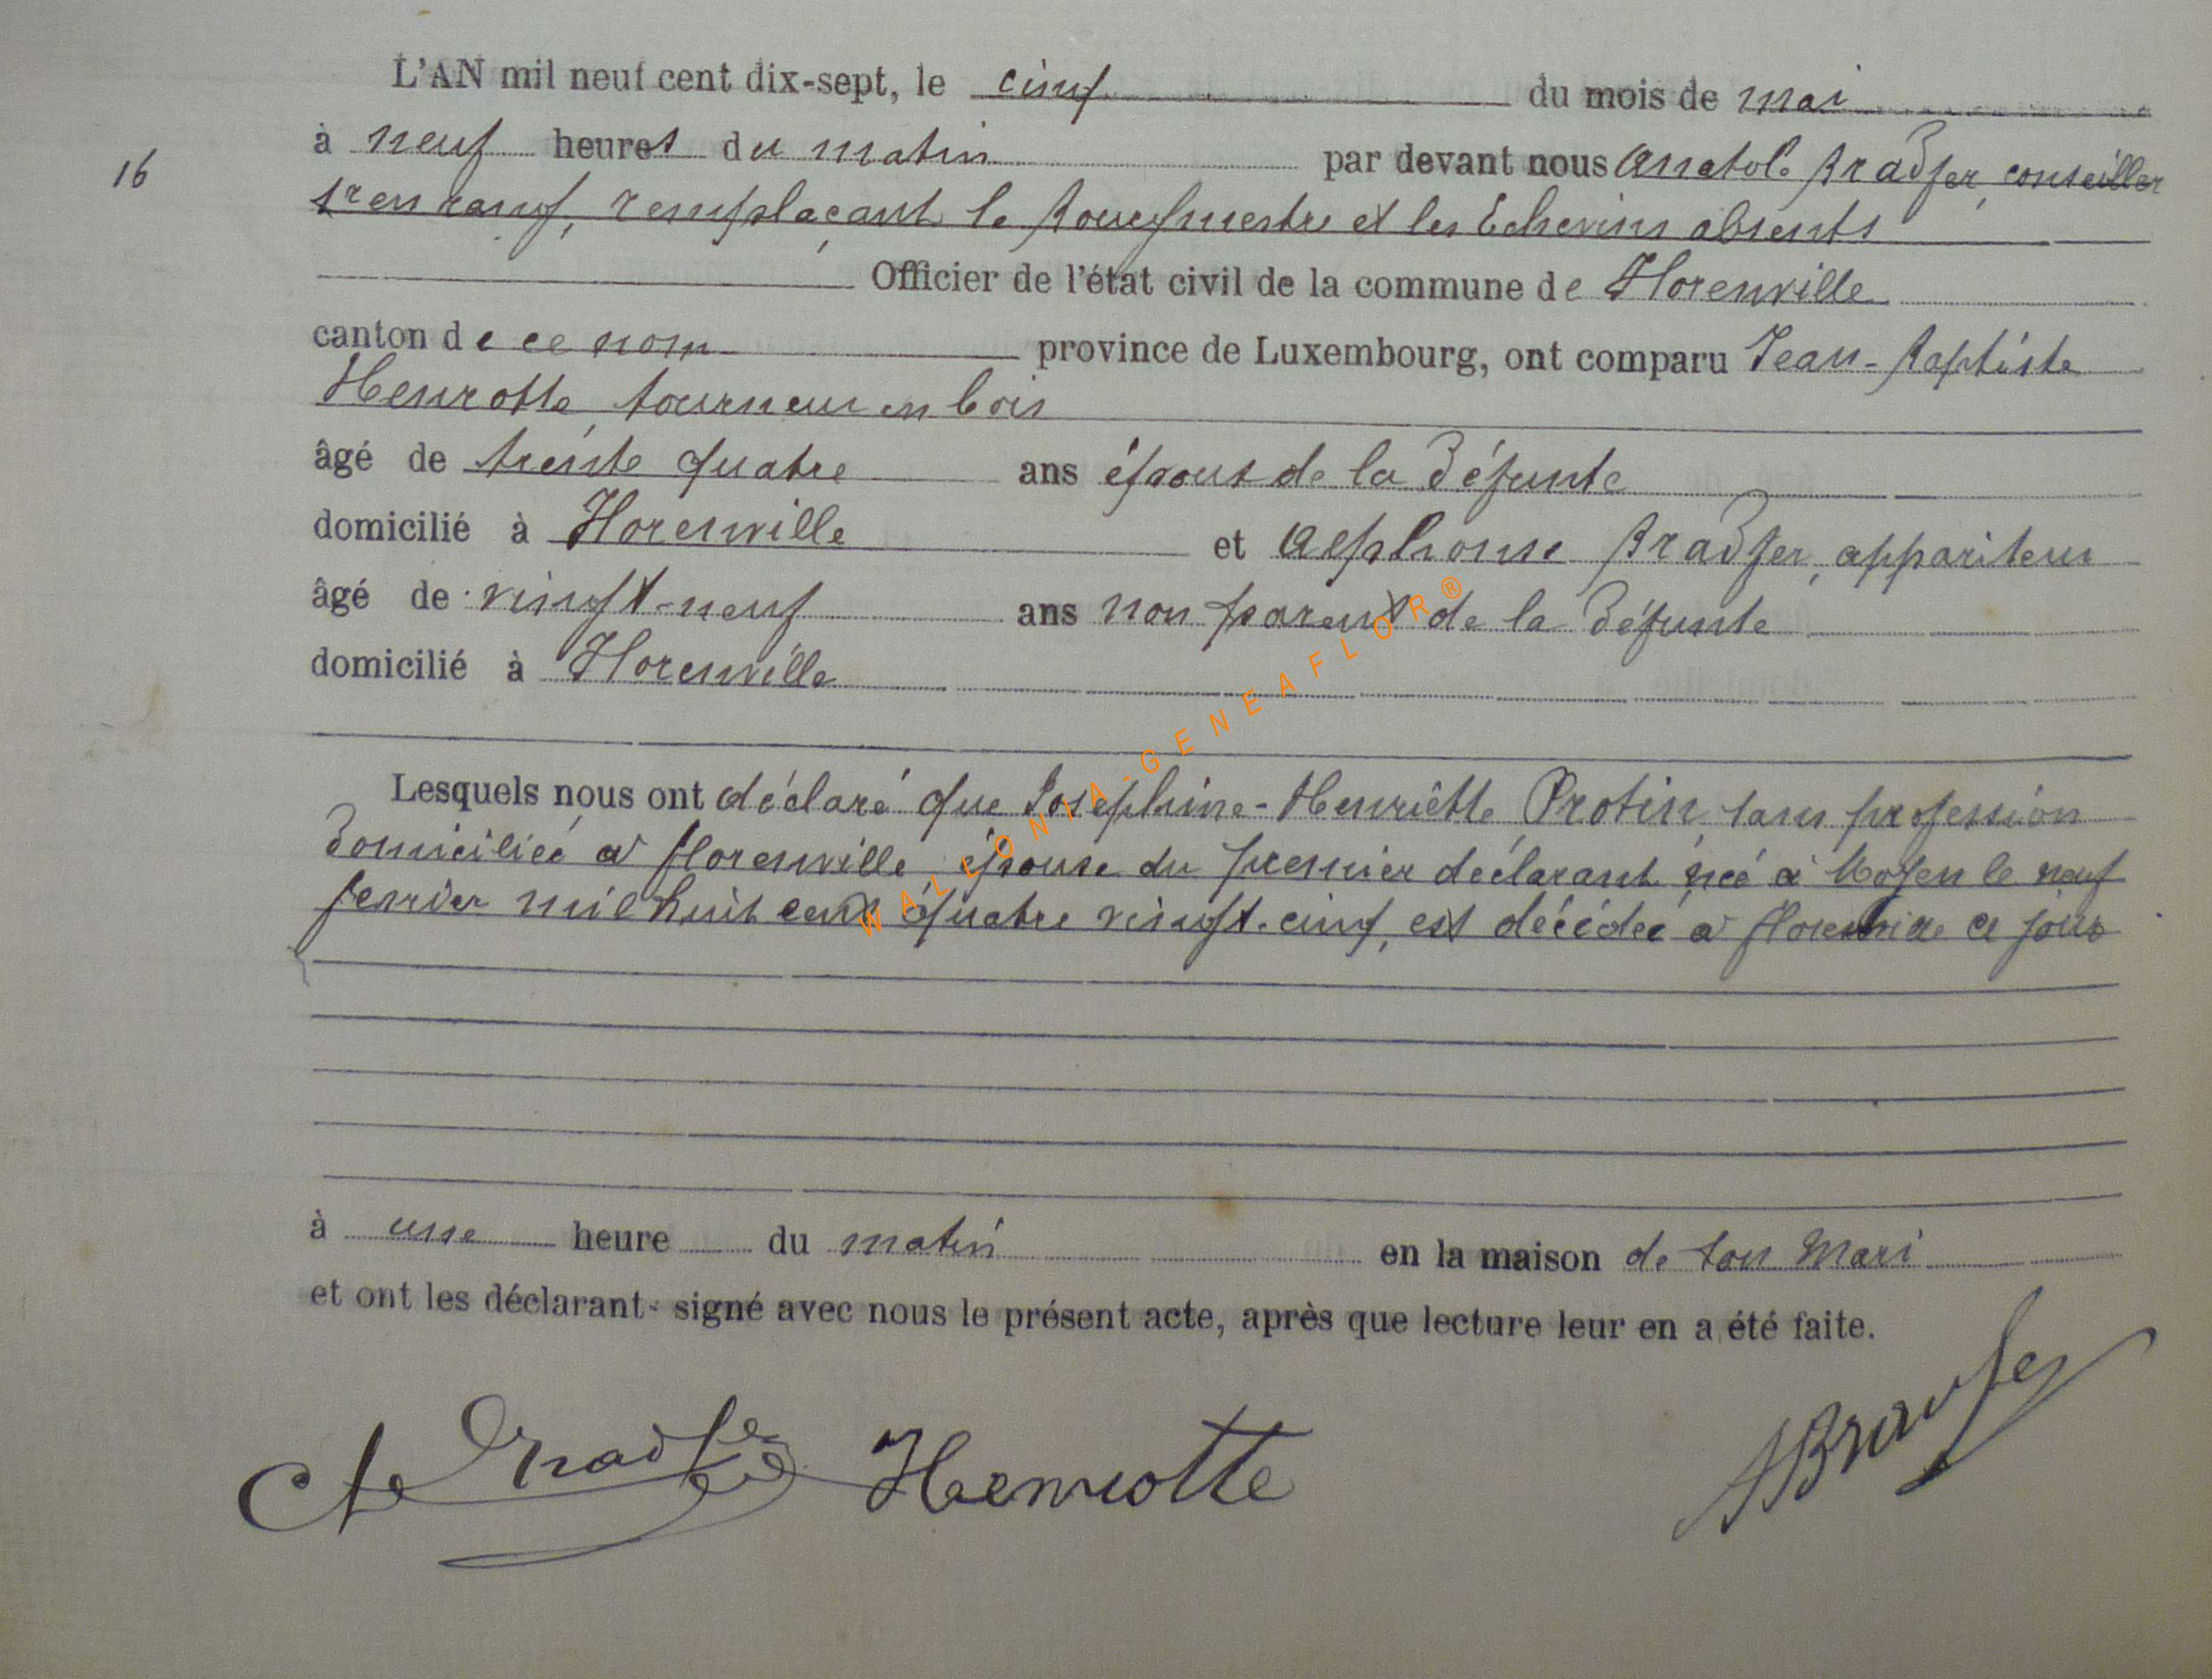 L'AN mil neuf cent dix-sept, le cinq du mois de mai
16
à neuf heures du matin par devant nous Anatole Bradfer, conseiller
1er en rang, remplaçant le Bourgmestre et les Echevins absents
Officier de l'état civil de la commune de Florenville
canton de ce nom province de Luxembourg, ont comparu Jean-Baptiste
Henrotte, tourneur en bois
âgé de trente quatre ans époux de la défunte
domicilié à Florenville et Alphonse Bradfer, appariteur
âgé de vingt-neuf ans non parent de la défunte
domicilié à Florenville
Lesquels nous ont déclaré que Josephine-Henriette Protin, sans profession
domiciliée à Florenville épouse du premier déclarant, née à Moyen le neuf
fevrier mil huit cent quatre vingt-cinq, est décédée à Florenville ce jour
à une heure du matin en la maison de son mari
et ont les déclarant signé avec nous le présent acte, après que lecture leur en a été faite.
Bradfer Henrotte ABradfer
WALLONIA-GENEAFLOR®